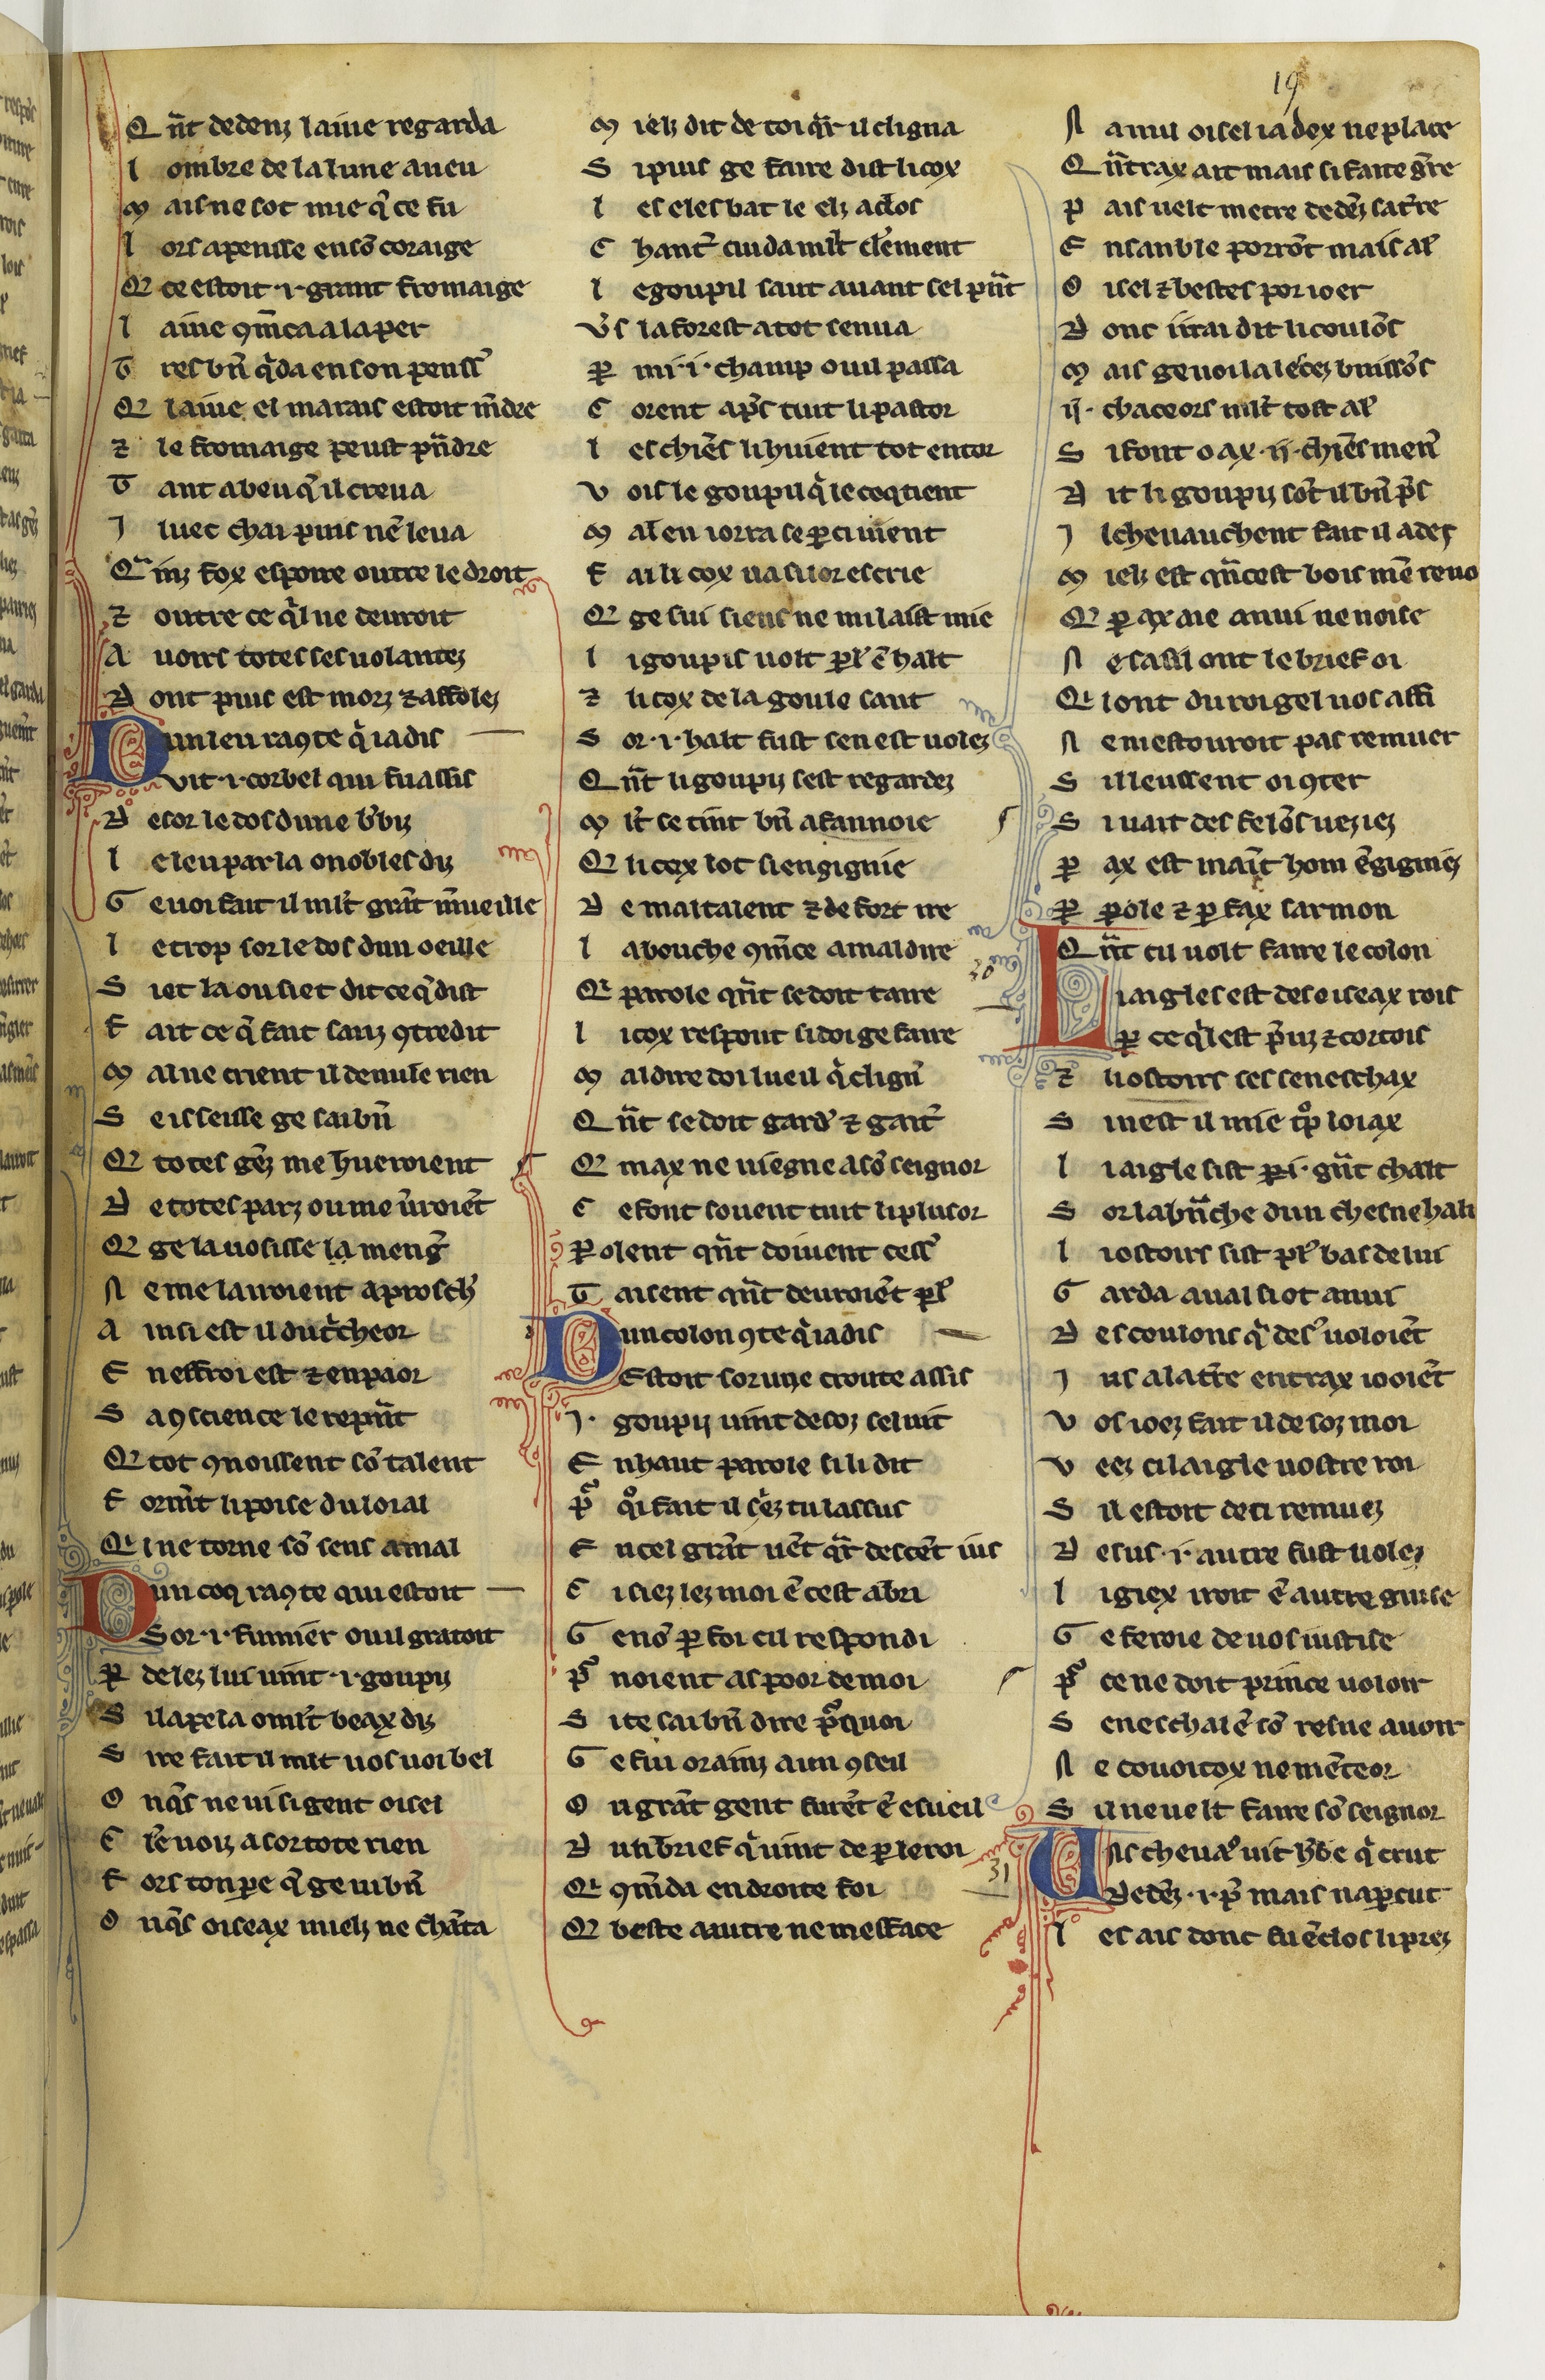 19
Q ñt dedenz laiue regarda
l ombre de la lune a ueu
M ais ne sot mie q̃ ce fu
l ors apensse en sõ coraige
Q̃ ce estoit .i. grant fromaige
l aiue ꝯm̃ca a laper
T res bñ q̃da en son pensſ̃
Q̃ laiue el marais estoit m̃dre
⁊ le fromaige peust pñdre
T ant a beu q̃ il creua
I luec chai puis nẽ leua
Q̃ inz fox espoire outre le droit
⁊ outre ce q̃l ne deuroit
A uoirs totes ses uolantez
D ont puis est morz ⁊ affolez
Dun leu raꝯte q̃ iadis
Vit .i. corbel qui fu assis
D esor le dos dune b̃biz
l e leu parla o nobles diz
G e uoi fait il ml̃t grãt m̃ueille
l e trop sor le dos dun oeille
S iet la ou siet dit ce q̃ dist
F ait ce q̃ fait sanz ꝯtredit
M al ne crient il de nule rien
S e is seisse ge sai bñ
Q̃ totes gẽz me hueroient
D e totes parz ou me ũroiẽt
Q̃ ge la uosisse la meng̃
N e me lairoient aprosch̃
A insi est il du tr̃cheor
E n effroi est ⁊ en paor
S a ꝯscience le repñt
Q̃ tot ꝯnoissent sõ talent
F orm̃t li poise du loial
Q̃ i ne torne sõ sens a mal
Dun coq raꝯte qui estoit
Sor .i. fumier ou il gratoit
P̱ delez lui uint .i. goupiz
S il apela o ml̃t beax diz
S ire fait il mlt uos uoi bel
O nq̃s ne ui si gent oisel
C lẽ uoiz a sor tote rien
F ors ton pere q̃ ge ui bñ
O nq̃s oiseax mielz ne chãta
M ielz dit de toi q̃r il cligna
S i puis ge faire dist li cox
l es eles bat les elz a clos
C hant̃ cuida ml̃t clẽment
l e goupil saut auant sel pñt
Vs̃ la forest a tot senua
P̱ mi .i. champ ou il passa
C orent ap̃s tuit li pastor
l es chiẽs li huient tot entor
V ois le goupil q̃ le coq tient
M al en iorra se p̱ ci uient
F ai li cox ua si lor escrie
Q̃ ge sui siens ne mi laist mie
l i goupis uolt pl̃ ẽ halt
⁊ li cox de la goule saut
S or .i. halt fust sen est uolez
Q ñt li goupiz sest regardez
M l̃t se tint bñ a fannoie
Q̃ li cox lot si engignie
D e maltalent ⁊ de fort ire
l a bouche ꝯm̃ce a maldire
Q̃ parole qñt se doit taire
l i cox respont si doi ge faire
M aldire doi lueil q̃ clign̄
Q ñt se doit gard̃ ⁊ gait̃
Q̃ max ne uiegne a sõ seignor
C e font souent tuit li plusor
P̱olent qñt doiuent cess̃
T aisent qñt deuroiẽt pl̃
Dun colon ꝯte q̃ iadis
Estoit sor une croute assis
I. goupiz uint desoz sel uit
E nhaut parole si li dit
P̃ qoi fait il sẽz tu lassus
E n cel grãt uẽt q̃r descẽt ius
C i siez lez moi ẽ cest abri
G e nõs p̱ foi cil respondi
P̃ noient as poor de moi
S i te sai bñ dire p̃quoi
G e fui orainz a un ꝯseil
O u grãt gent furẽt ẽ esueil
D un brief q̃ uint de p̱ le roi
Q̃ ꝯm̃da en droite foi
Q̃ beste a autre ne mesface
N a nul oisel ia dex ne place
Q ñtrax ait mais si faite gr̃re
P ais uelt metre dedẽz sa tr̃re
E nsanble porrõt mais al̃
O isel ⁊ bestes por ioer
D onc iirai dit li coulõs
M ais ge uoi la lẽ cez buissõs
II. chaceors ml̃t tost al̃
S i font o ax .ii. chiẽs men̄
D it li goupiz sõt il bñ p̃s
I l cheuauchent fait il ades
M ielz est qñ cest bois mẽ reuo
Q̃ p̱ ax aie anui ne noise
N e sai sil ont le brief oi
Q̃ i ont du roi gel uos affi
N e mestouroit pas remuer
S il leussent oi ꝯter
S i uait des felõs ueziez
P̱ ax est maĩt hom ẽgigniez
P̱ p̱ole ⁊ p̱ fax sarmon
Q ñt cil uolt faire le colon
Li aigles est des oiseax rois
P̱ ce q̃l est p̃uz ⁊ cortois
⁊ li ostoirs ses seneschax
S i nest il mie tp̃ loiax
l i aigle sist p̱ .i. gñt chalt
S or la bñche dun chesne halt
l i ostoirs sist pl̃ bas de lui
G arda aual si ot anui
D es coulons q̃ des̃ uoloiẽt
I us a la tr̃re entrax iooiẽt
V os ioez fait il desoz moi
V eez cil aigle uostre roi
S il estoit deci remuez
D esus .i. autre fust uolez
l i giex iroit ẽ autre guise
G e feroie de uos iustise
P̃ ce ne doit prince uoloir
S eneschal ẽ sõ resne auoir
N e couoitox ne mẽteor
S il ne uelt faire sõ seignor
Uns cheual̃ uit h̃be q̃ crut
Dedẽz .i. p̃ mais nap̱cut
l es ais dont fu ẽclos li prez
31